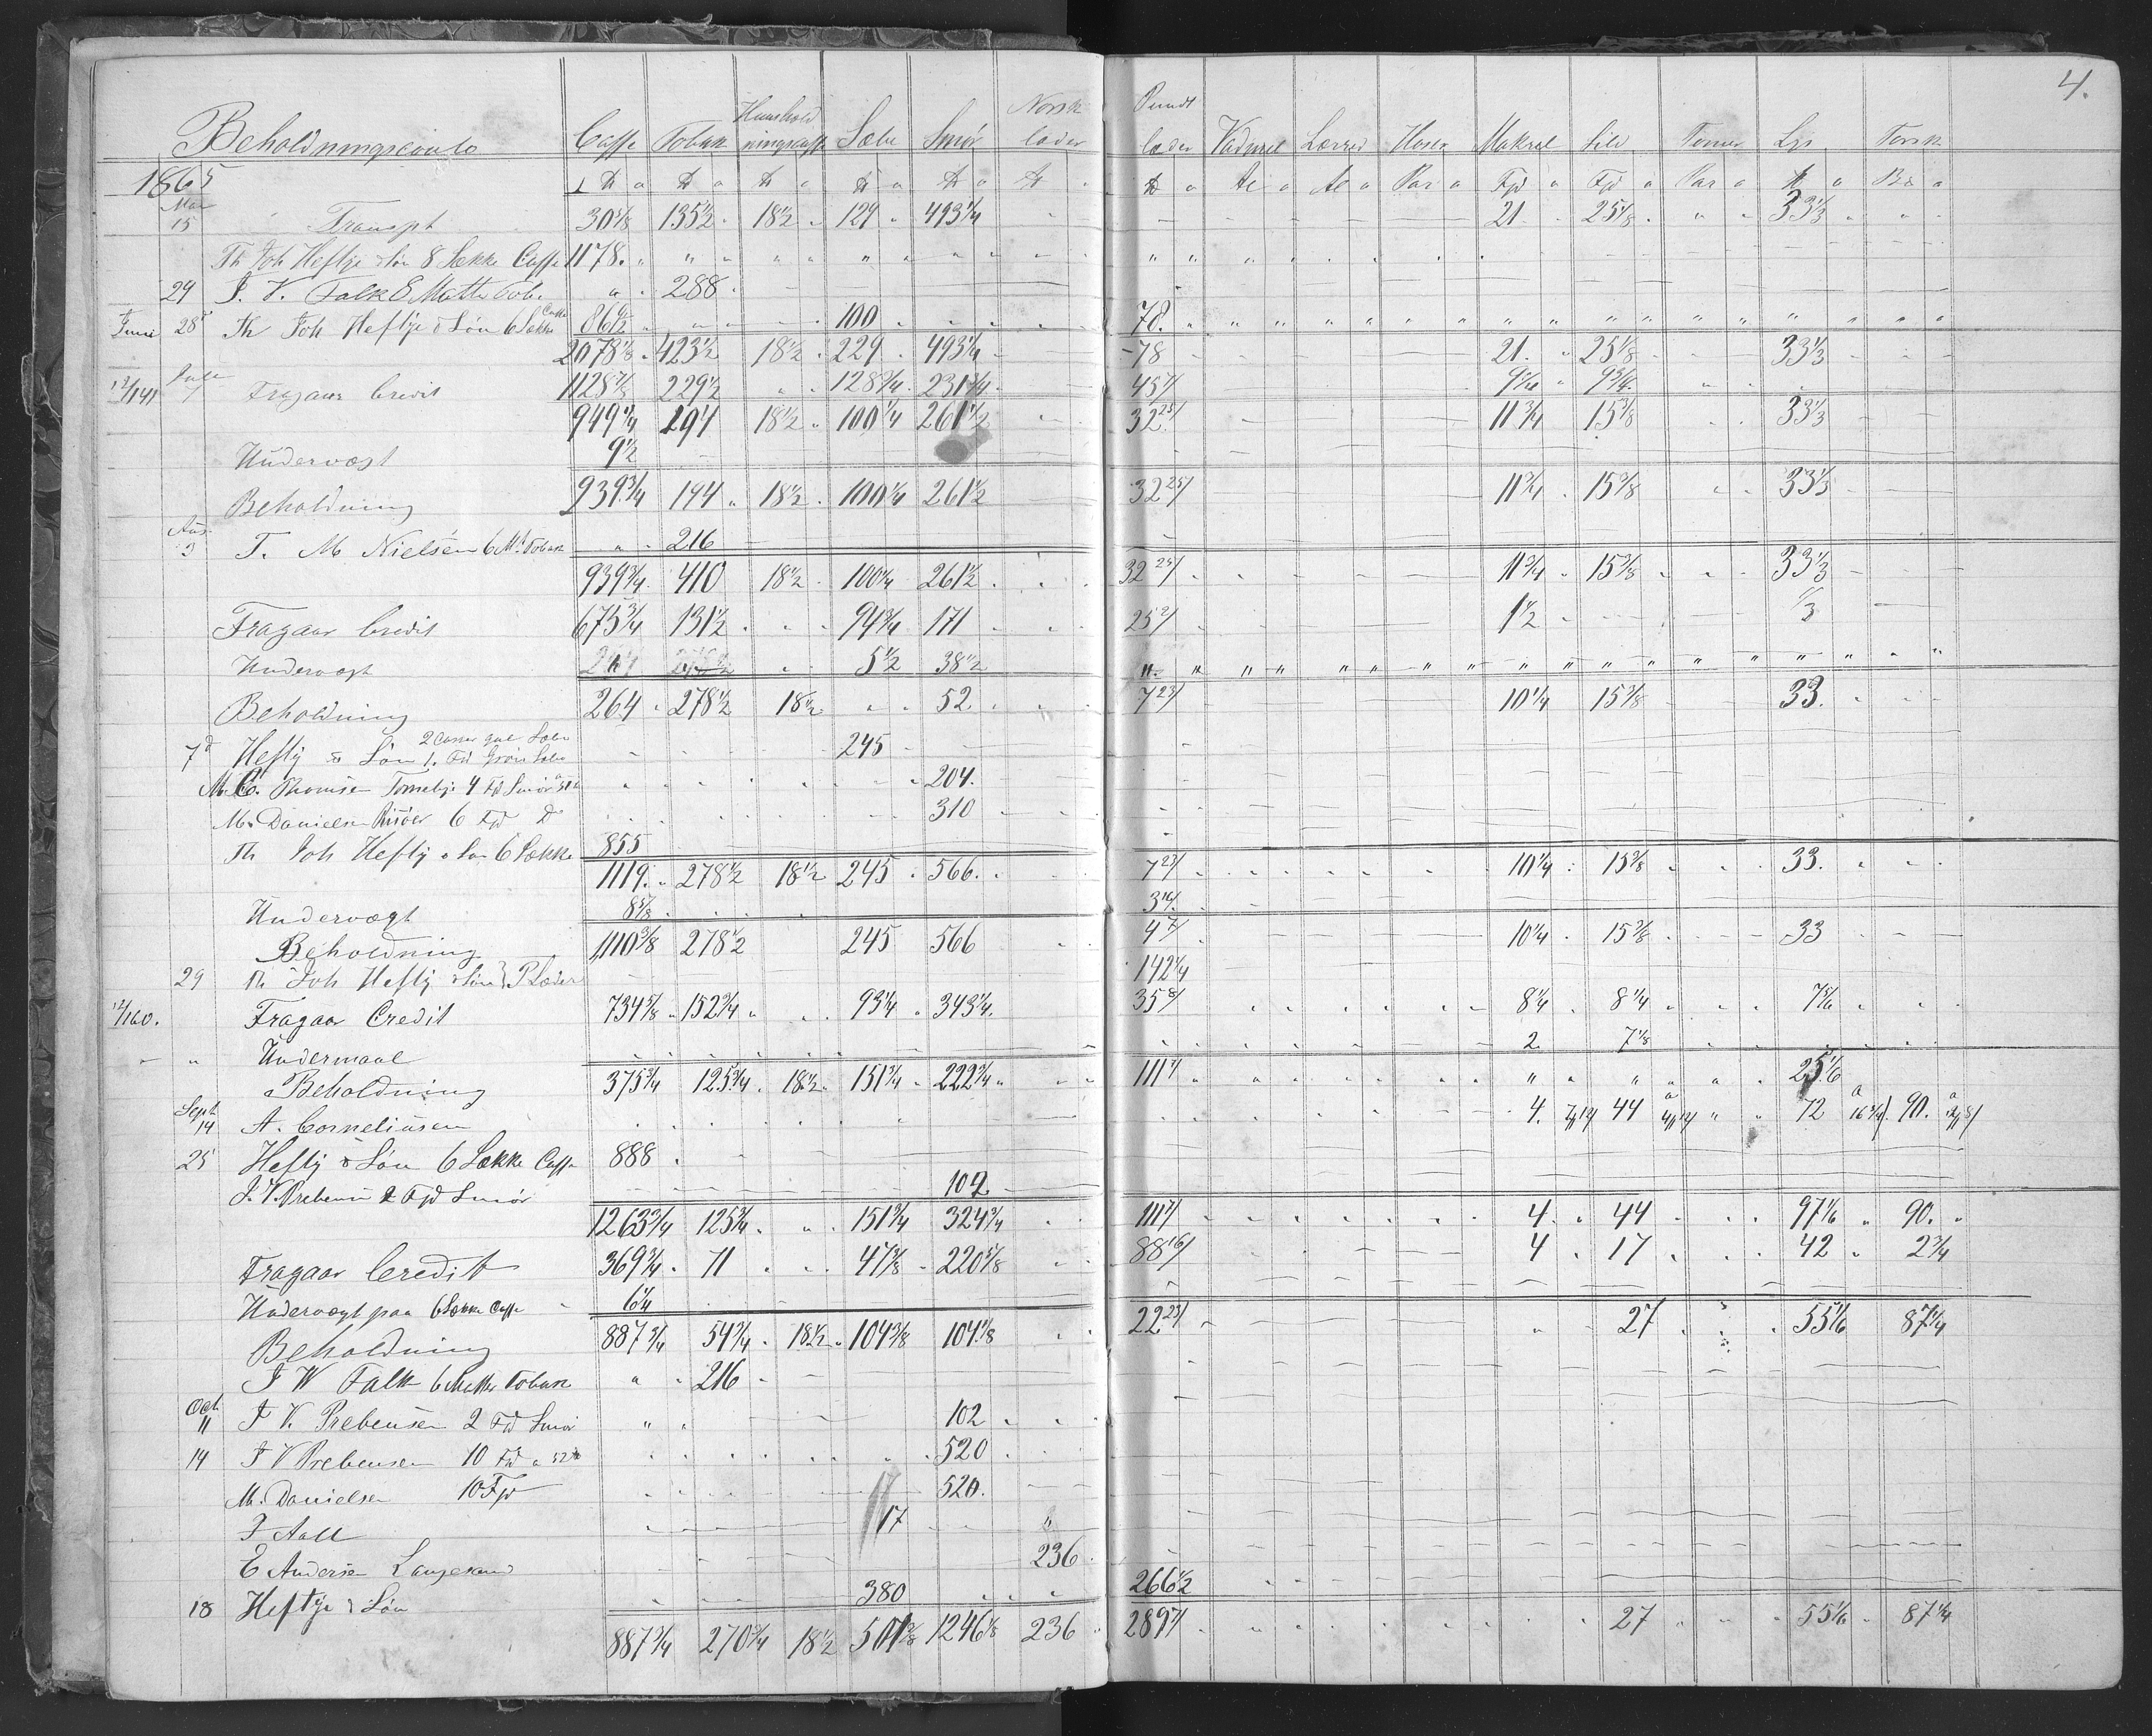 4.
Beholdningsconto Caffe Tobak Huushold ningscaffe Sæbe Smør Norsk læder Pundt læder Vadmel Lærred Hoser Makrel Sild Tonner Lys Torsk
1865 ℔ ℔ ℔ ℔ ℔ ℔ ℔ Al Al Par Fjd Fjd Par ℔
Mai 15 Transpt 30 5/8 135 1/2 18 1/2 129 493 1/4 21 25 1/8 33 1/3
Th Joh Heftye & Søn 8 Sække Caffe 1178.
29 J. V. Falk 8 Matte Tob. 288
Juni 28 Th Joh Heftye & Søn 6 Sække Caffe 100 78.
2078 1/8 423 1/2 18 1/2 229 493 1/4 78 21. 25 1/8 33 1/3
12/141 Fragaar Credit 1128 7/8 229 1/2 128 3/4 231 3/4 45 7/ 9 1/4 9 3/4
949 1/4 194 18 1/2 100 1/4 261 1/2 32 25/ 11 3/4 15 3/8 33 1/3
Undervægt 9 1/2
Beholdning 939 3/4 194 18 1/2 100 1/4 261 1/2 32 25/ 11 3/4 15 3/8 33 1/3
Aug. 3 T. M Nielsen 6 Mt Tobak 216
939 3/4 410 18 1/2 100 1/4 261 1/2 32 25/ 11 3/4 15 3/8 33 1/3
Fragaar Credit 675 3/4 131 1/2 94 3/4 171 25 2/ 1 1/2 1/3
Undervægt 5 1/2 38 1/2
Beholdning 264 278 1/2 18 1/2 52 7 23/ 10 1/4 15 3/8 33.
7 Hefty & Søn 2 Casser gul Sæbe 1. Fd Grøn Sæbe 245
M. C. Thomsen 4 Fd Smør 204.
M. Danielsen Risöer 6 Fjd D 310
Th Joh Hefty & Søn 6 Sække 855
1119. 278 1/2 18 1/2 245 566. 7 23/ 10 1/4 15 3/8 33.
Undervægt 8 5/8 3 16/
Beholdning 1110 3/8 278 1/2 245 566 4 7/ 10 1/4 15 3/8 33
29 Th Joh Hefty & Søn P Læder 142 1/4
12/160. Fragaar Credit 734 5/8 152 3/4 93 1/4 343 1/4. 35 8/ 8 1/4 8 1/4 7 5/6
Undermaal 2 7 1/8
Beholdning 375 3/4 125 3/4 18 1/2 151 3/4 222 3/4 111 7/ 25 1/6
Sept 14 A. Corneliusen 4. 44 72 90.
25 Hefty & Søn 6 Sække Caffe 888
J. V. Prebensen 2 Fjd Smør 102
1263 3/4 125 3/4 151 3/4 324 3/4 111 7/ 4. 44 97 1/6 90.
Fragaar Credit 369 3/4 71 47 3/8 220 5/8 88 16/ 4 17 42 2 3/4
Undervægt paa 6 Sække Caffe 6 1/4
Beholdning 887 3/4 54 3/4 18 1/2 104 3/8 104 1/8 22 23/ 27 55 1/6 87 1/4
J W Falk 6 Matter Tobak 216
Oct. 11 J V. Prebensen 2 Fd Smør 102
14 J V Prebensen 10 Fjd a 52 ℔ 520
M. Danielsen 10 Fjd 520.
J Aall 17
E Andersen Langesund 236
18 Heftye & Søn 380 266 1/2
887 3/4 270 3/4 18 1/2 501 3/8 1246 1/8 236 289 7/ 27 55 1/6 87 1/4